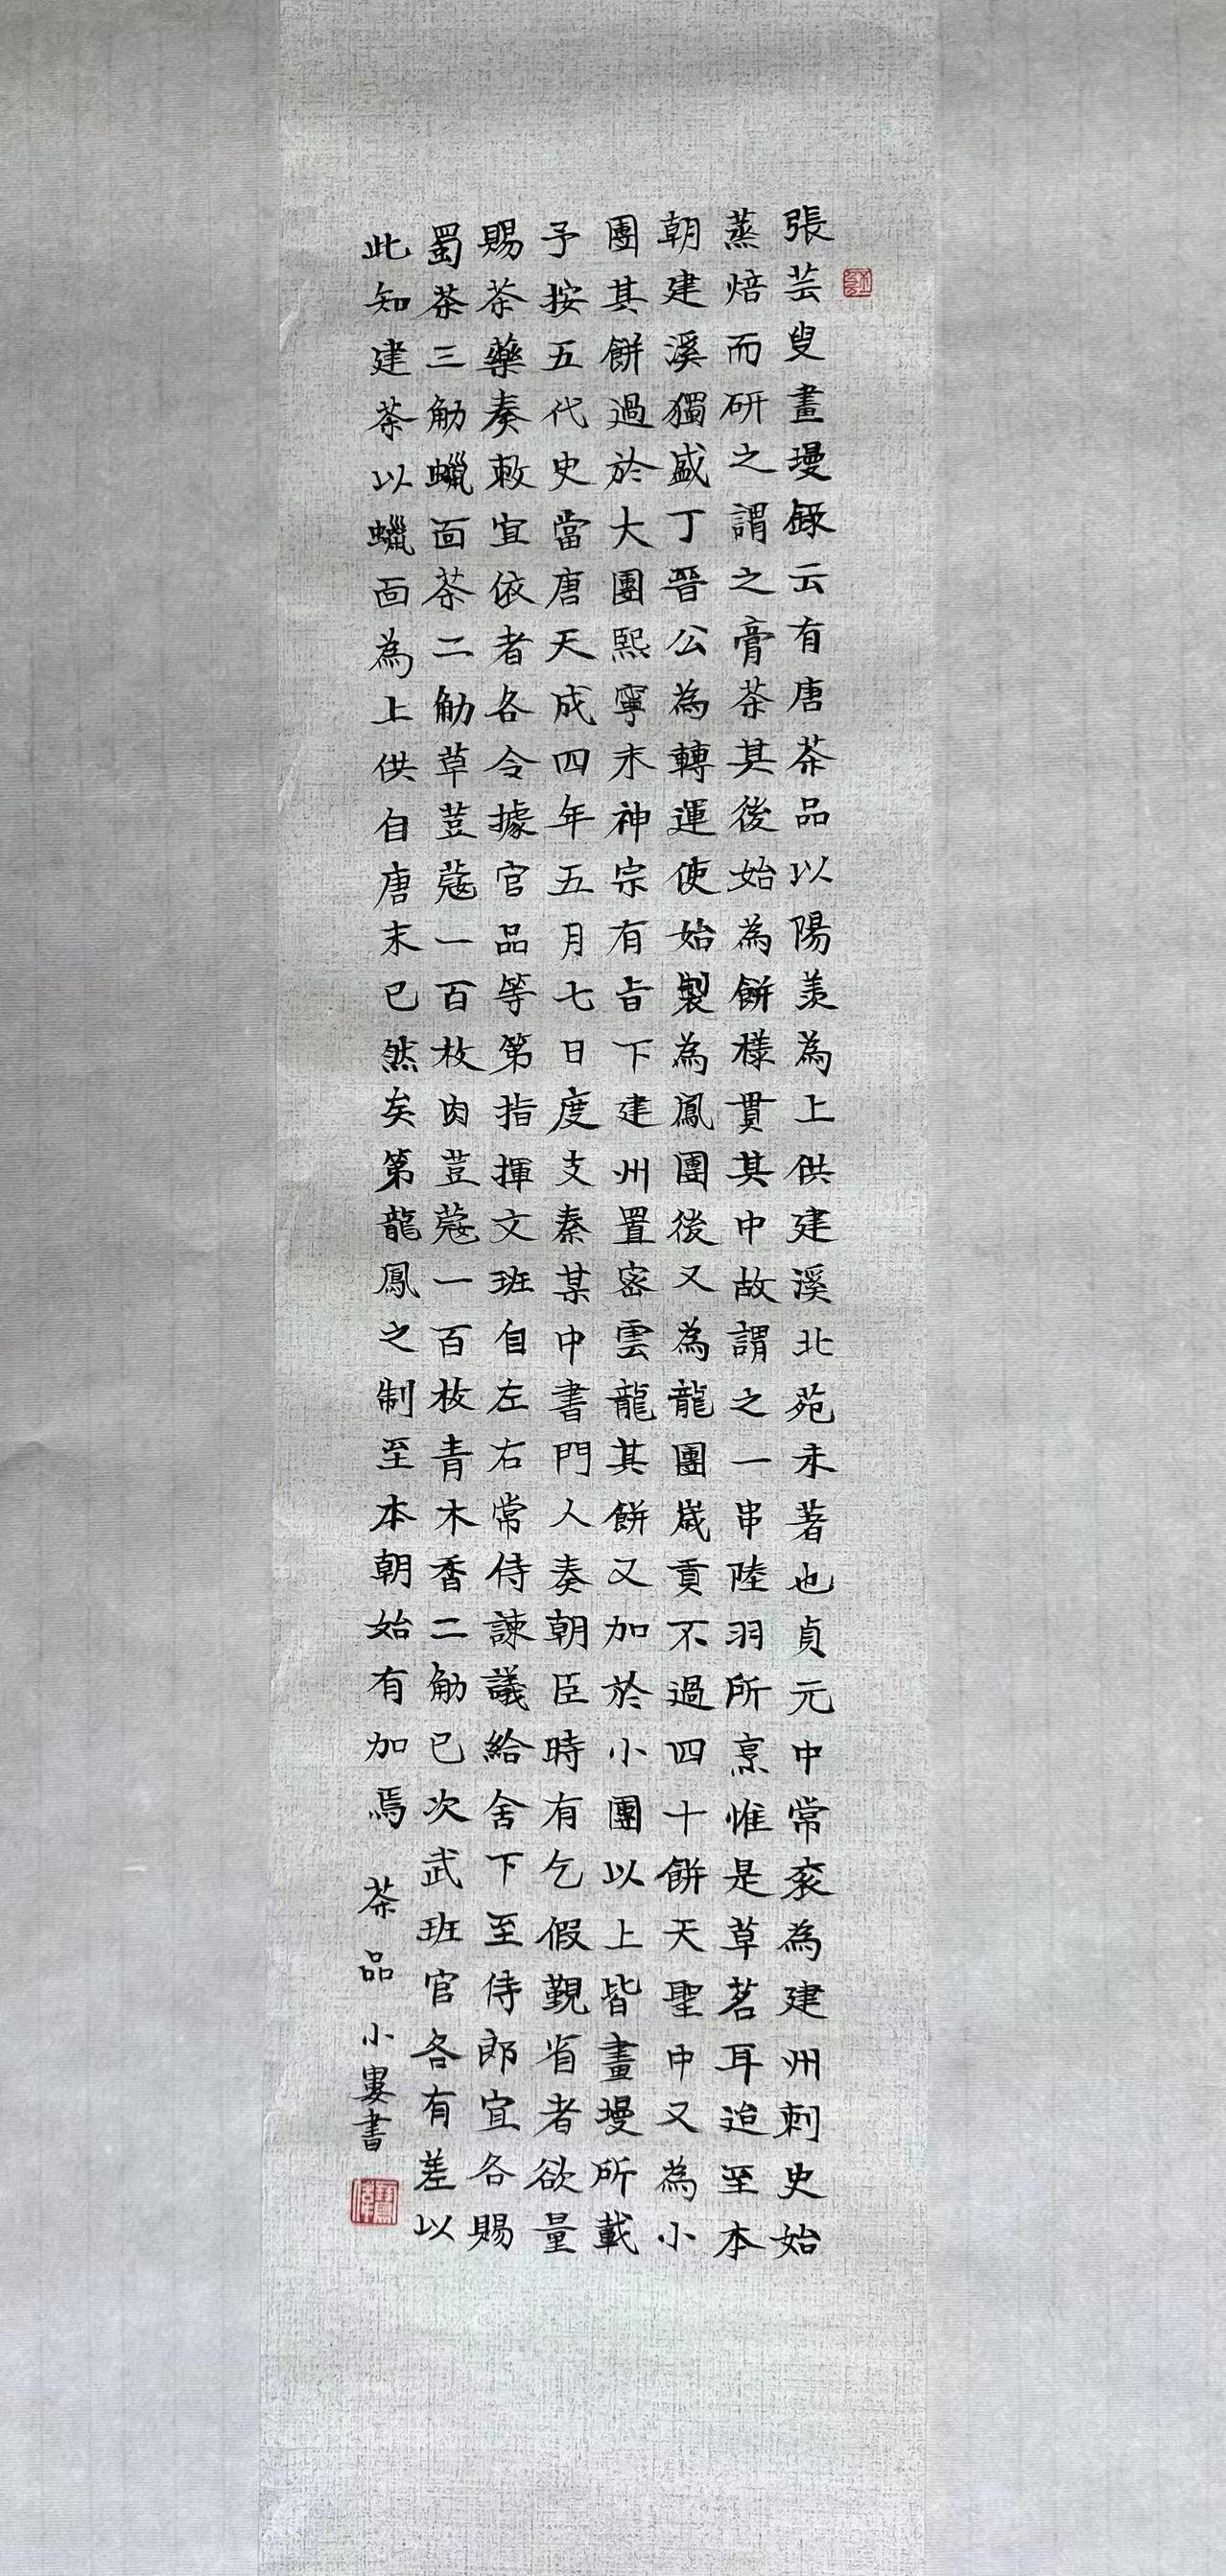 張芸叟畫墁錄云有唐茶品以陽羨為上供建溪北苑未著也貞元中常袞為建州刺史始
蒸焙而研之謂之膏茶其後始為餅樣貫其中故謂之一串陸羽所烹惟是草茗耳迨至本
朝建溪獨盛丁晉公為轉運使始製為鳳團後又為龍團歲貢不過四十餅天聖中又為小
團其餅過於大團熙寧末神宗有旨下建州置密雲龍其餅又加於小團以上皆畫墁所載
予按五代史當唐天成四年五月七日度支奏某中書門人奏朝臣時有乞假覲省者欲量
賜茶藥奏敕宜依者各令據官品等第指揮文班自左右常侍諫議給舍下至侍郎宜各賜
蜀茶三觔蠟面茶二觔草荳蔻一百枚肉荳蔻一百枚青木香二觔已次武班官各有差以
此知建茶以蠟面為上供自唐末已然矣第龍鳳之制至本朝始有加焉 茶品 小婁書